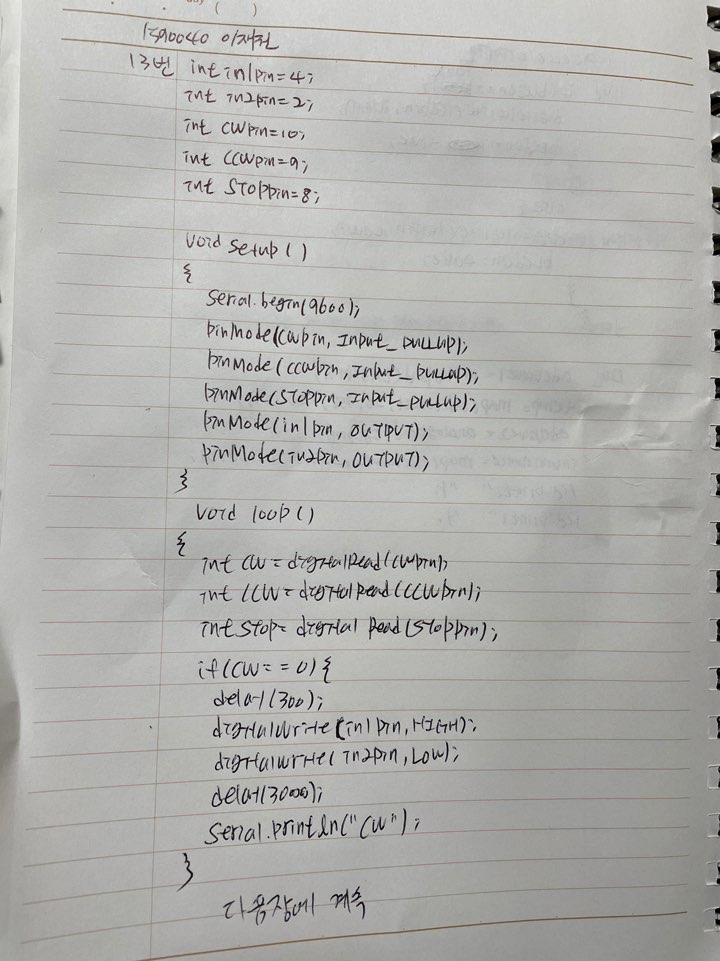 1590040 이재권
13번 int in1pin=4;
int in2pin=2;
int cwpin=10;
int ccwpin=9;
int STOPpin=8;
void setup()
{
Serial.begin(9600);
pinMode(cwpin, Input_pullup);
pinMode(ccwpin, Input_pullup);
pinMode(stoppin, Input_pullup);
pinMode(in1pin, OUTPUT);
pinMode(in2pin, OUTPUT);
}
void loop()
{
int cw = digitalRead(cwpin);
int ccw = digitalRead(ccwpin);
int stop= digital Read(stoppin);
if(cw==0){
delay(300);
digitalwrite(in1pin,HIGH);
digitalwrite(in2pin,Low);
delay(3000);
Serial.println("cw");
}
다음장에 계속